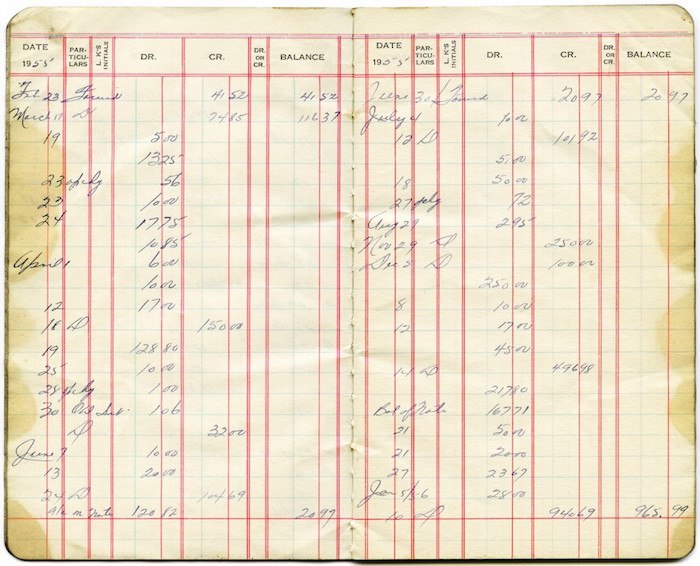 DATE PAR-TICU-LARS L. K'S INITIALS DR. CR. DR. OR CR. BALANCE
1955
Feb 23 Forward 41 52 41 52
March 17 D 74 85 116 37
19 5 00
13 25
23 56
23 10 00
24 17 75
10 85
April 1 6 00
10 00
12 17 00
18 D 150 00
19 128 80
25 10 00
28 1 00
30 1 06
D 32 00
June 7 10 00
13 20 00
24 D 104 69
Note 120 82 20 97
DATE PAR-TICU-LARS L. K'S INITIALS DR. CR. DR. OR CR. BALANCE
1955
June 30 Forward 20 97 20 97
July 4 10 00
12 D 101 92
51 00
18 50 00
27 72
Aug 29 2 95
Nov 29 D 250 00
Dec 5 D 100 00
250 00
8 10 00
12 17 00
45 00
14 D 496 98
217 80
Bal of Note 167 71
21 50 00
21 20 00
27 23 67
Jan 5/56 28 00
10 D 940 69 965. 99